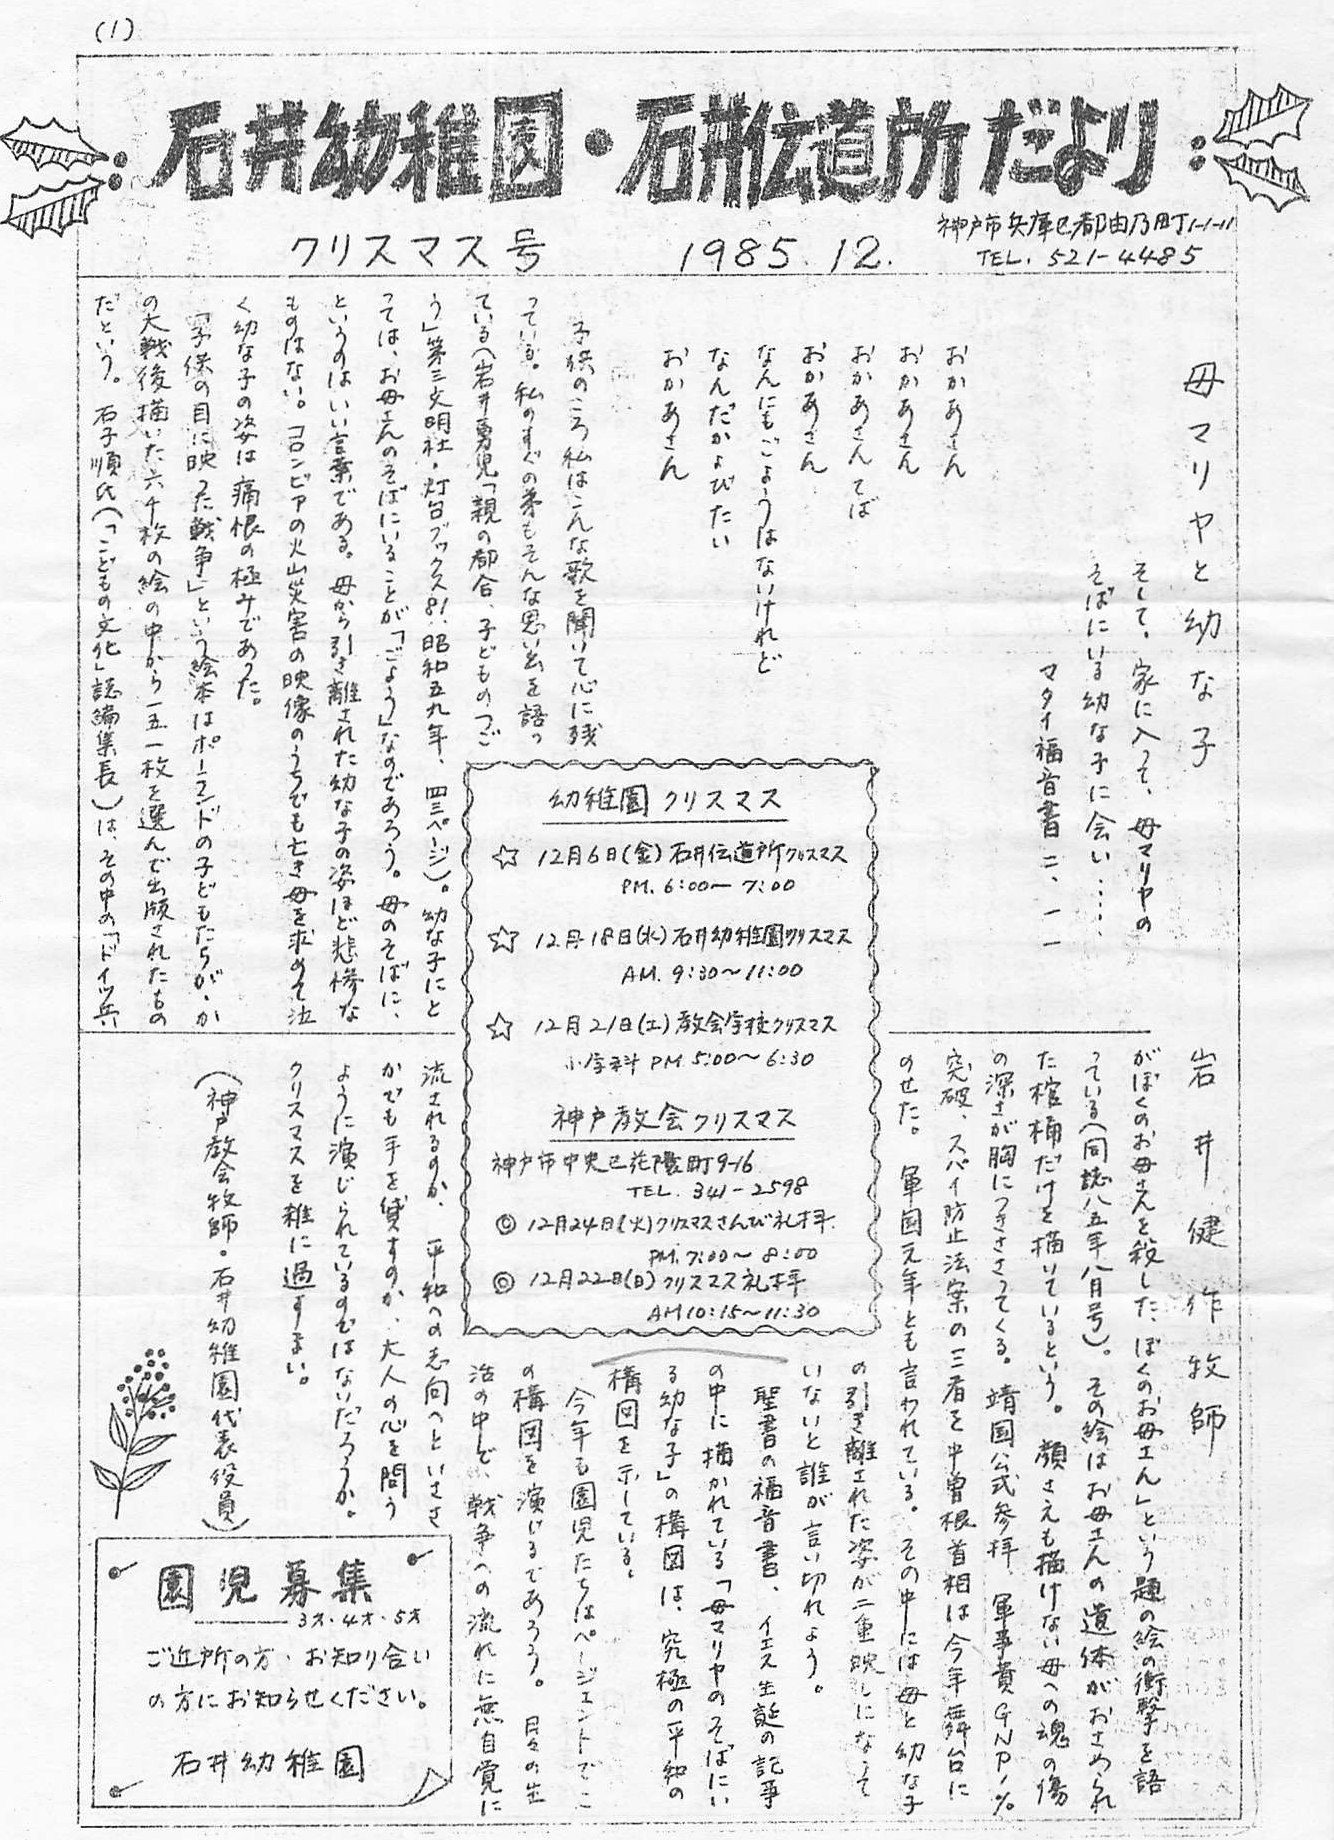 (1)
石井幼稚園・石井伝道所だより
クリスマス号 1985.12.
神戸市兵庫区都由乃町1-1-11
TEL. 521-4485
母マリヤと幼な子
岩井健作牧師
そして、家に入って、母マリヤの
そばにいる幼な子に会い……
マタイ福音書 二、一一
おかあさん
おかあさん
おかあさんてば
おかあさん
なんにもごようはないけれど
なんだかよびたい
おかあさん
子供のころ私はこんな歌を聞いて心に残
っている。私のすぐの弟もそんな思い出を語っ
ている(岩井勇児「親の都合、子どものつご
う」第三文明社・灯台ブックス81、昭和五九年、四三ページ)。幼な子にと
っては、お母さんのそばにいることが「ごよう」なのであろう。母のそばに、
というのはいい言葉である。母から引き離された幼な子の姿ほど悲惨な
ものはない。コロンビアの火山災害の映像のうちでも亡き母を求めて泣
く幼な子の姿は痛恨の極みであった。
「子供の目に映った戦争」という絵本はポーランドの子どもたちが、か
の大戦後描いた六千枚の絵の中から一五一枚を選んで出版されたもの
だという。石子順氏(「こどもの文化」誌編集長)は、その中の「ドイツ兵
がぼくのお母さんを殺した、ぼくのお母さん」という題の絵の衝撃を語
っている(同誌八五年八月号)。その絵はお母さんの遺体がおさめられ
た棺桶だけを描いているという。顔さえも描けない母への魂の傷
の深さが胸につきささってくる。靖国公式参拝、軍事費GNP1%
突破、スパイ防止法案の三者を中曽根首相は今年舞台に
のせた。軍国元年とも言われている。その中には母と幼な子
の引き離された姿が二重映しになって
いないと誰が言い切れよう。
聖書の福音書、イエス生誕の記事
の中に描かれている「母マリヤのそばにい
る幼な子」の構図は、究極の平和の
構図を示している。
今年も園児たちはページェントでこ
の構図を演じるであろう。日々の生
活の中で、戦争への流れに無自覚に
流されるのか、平和への志向へといささ
かでも手を貸すのか、大人の心を問う
ように演じられているのではないだろうか。
クリスマスを雑に過すまい。
(神戸教会牧師・石井幼稚園代表役員)
幼稚園クリスマス
☆ 12月6日(金)石井伝道所クリスマス
PM. 6:00〜7:00
☆ 12月18日(水)石井幼稚園クリスマス
AM. 9:30〜11:00
☆ 12月21日(土)教会学校クリスマス
小学科 PM 5:00〜6:30
神戸教会クリスマス
神戸市中央区花隈町9-16
TEL. 341-2598
◎ 12月24日(火)クリスマスさんび礼拝
PM. 7:00〜8:00
◎ 12月22日(日)クリスマス礼拝
AM10:15〜11:30
園児募集
3才・4才・5才
ご近所の方・お知り合い
の方にお知らせください。
石井幼稚園